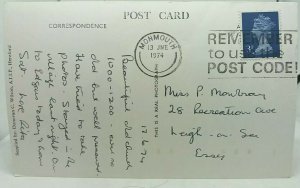 POST CARD
CORRESPONDENCE
MONMOUTH
13 JUNE
1974
REMEMBER
to use the
POST CODE!
12.6.74
Beautiful old church
1000-1200 - ours no
old but well preserved.
Have tried to take
photos. Stayed in the
village last night. On
to today & home
Sat. love
Miss P. Montray
28 Recreation Ave
Leigh-on-Sea
Essex